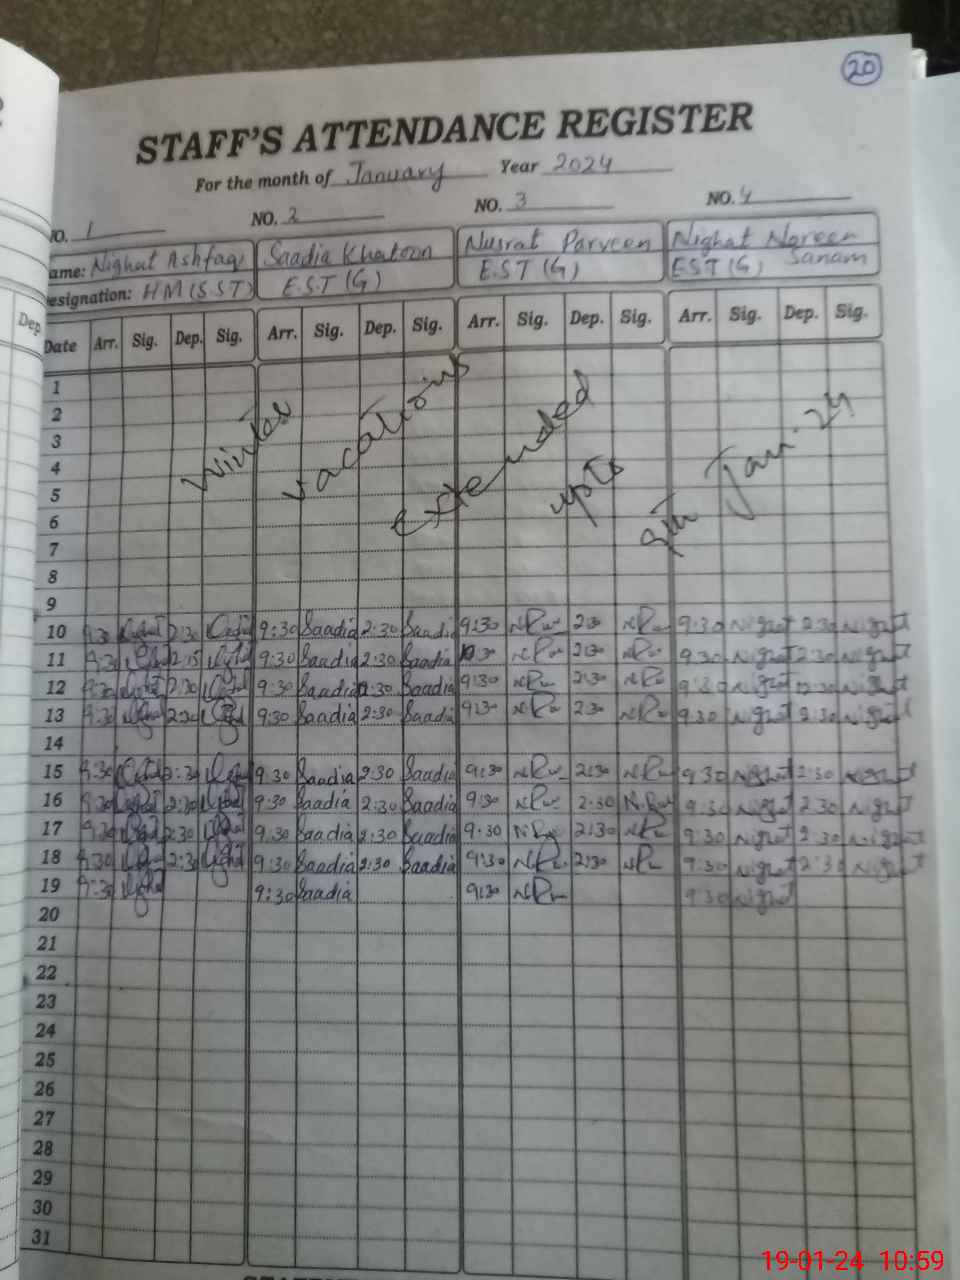 20
STAFF'S ATTENDANCE REGISTER
For the month of January Year 2024
NO. 1 NO. 2 NO. 3 NO. 4
ame: Nighat Ashfaq Saadia Khatoon Nusrat Parveen Nighat Noreen
esignation: HM (S.S.T) E.S.T (G) E.S.T (G) EST (G) Sanam
Dep
Date Arr. Sig. Dep. Sig. Arr. Sig. Dep. Sig. Arr. Sig. Dep. Sig. Arr. Sig. Dep. Sig.
Winter vacations extended upto 9th Jan-24
1
2
3
4
5
6
7
8
9
10 9:30 2:30 9:30 Saadia 2:30 Saadia 9:30 2:30 9:30 Nighat 2:30 Nighat
11 9:30 2:15 9:30 Saadia 2:30 Saadia 2:30 9:30 Nighat 2:30 Nighat
12 9:30 2:30 9:30 Saadia 2:30 Saadia 9:30 2:30 9:30 Nighat 2:30 Nighat
13 9:30 2:30 9:30 Saadia 2:30 Saadia 9:30 2:30 9:30 Nighat 2:30 Nighat
14
15 9:30 2:30 9:30 Saadia 2:30 Saadia 9:30 2:30 9:30 Nighat 2:30 Nighat
16 9:30 2:30 9:30 Saadia 2:30 Saadia 9:30 2:30 9:30 Nighat 2:30 Nighat
17 9:30 2:30 9:30 Saadia 2:30 Saadia 9:30 2:30 9:30 Nighat 2:30 Nighat
18 9:30 2:30 9:30 Saadia 2:30 Saadia 9:30 2:30 9:30 Nighat 2:30 Nighat
19 9:30 9:30 Saadia 9:30 9:30 Nighat
20
21
22
23
24
25
26
27
28
29
30
31
19-01-24 10:59